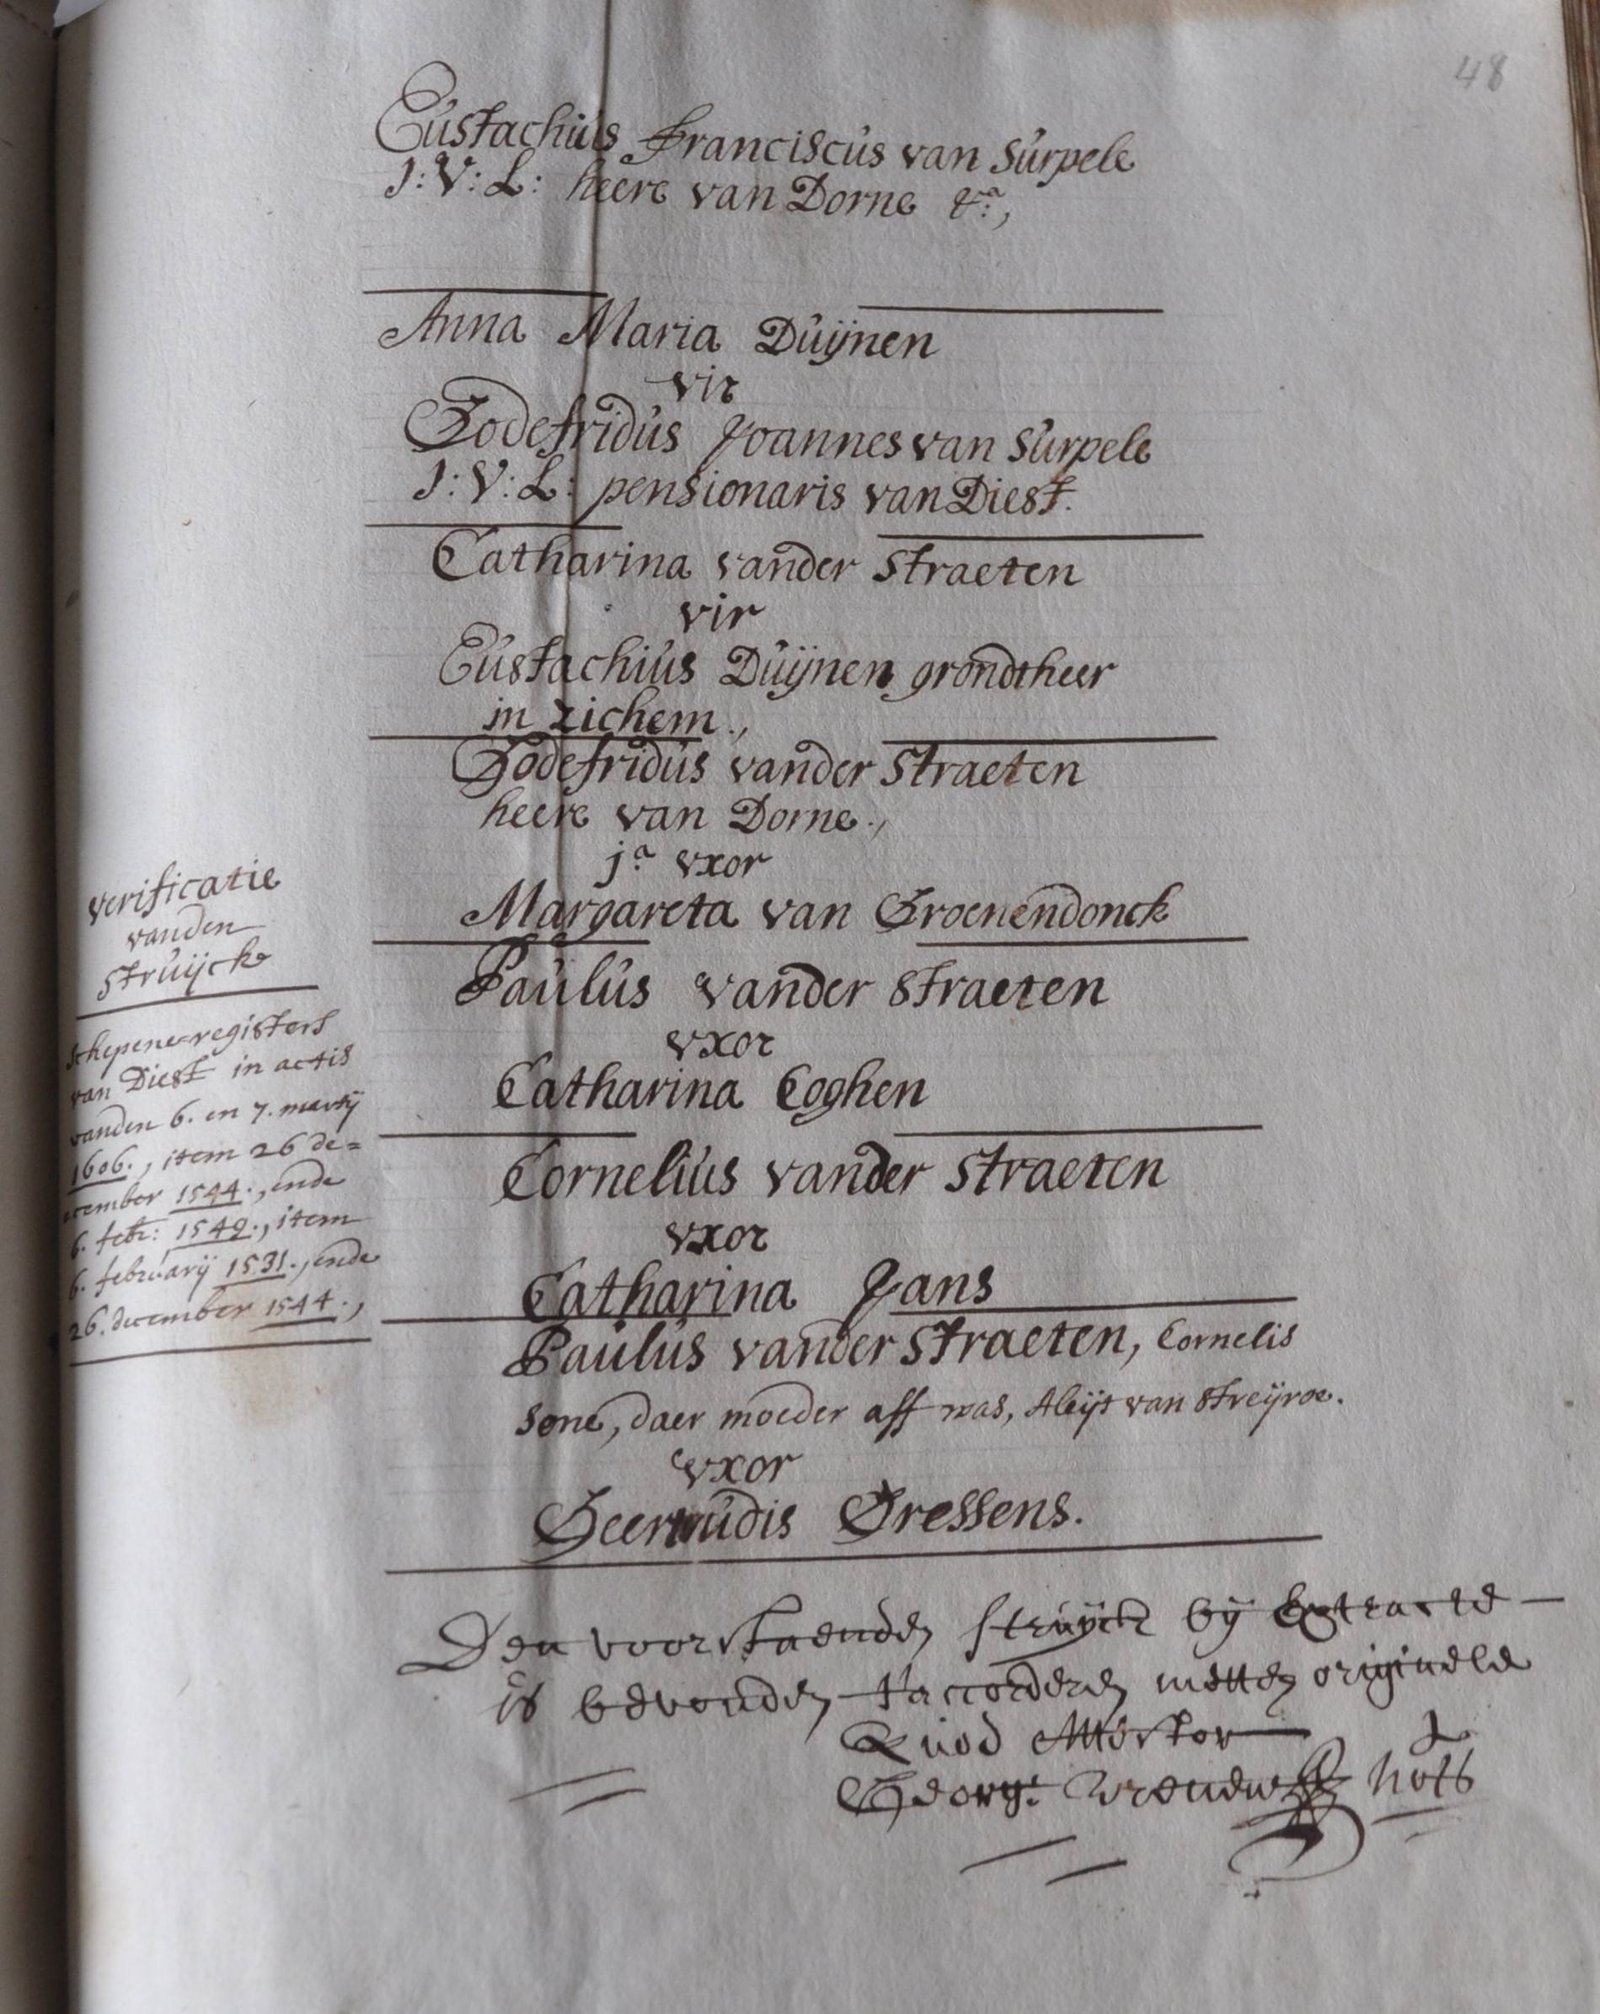 48
Eustachius Franciscus van Surpele
J: V: L: heere van Dorne &ª,
Anna Maria Duijnen
vir
Godefridus Joannes van Surpele
J: V: L: pensionaris van Diest.
Catharina vander Straeten
vir
Eustachius Duijnen grondtheer
in zichem.,
Godefridus vander Straeten
heere van Dorne.,
jª vxor
Margareta van Groenendonck
Paulus vander Straeten
vxor
Catharina Coghen
Cornelius vander Straeten
vxor
Catharina Jans
Paulus vander Straeten, Cornelis
sone, daer moeder aff was, Aleijt van Streijroe.
vxor
Geertrudis Gressens.
verificatie
vanden
struijck
schepene=registers
van Diest in actis
vanden 6. en 7. martij
1606., item 26 de=
cember 1544., ende
6. feb: 1549., item
6. februarij 1531., ende
26. december 1544.,
Den voorstaenden struyck by Extracte
is bevonden t'accorderen metten originele
Quod Attestor
Georg:
nots